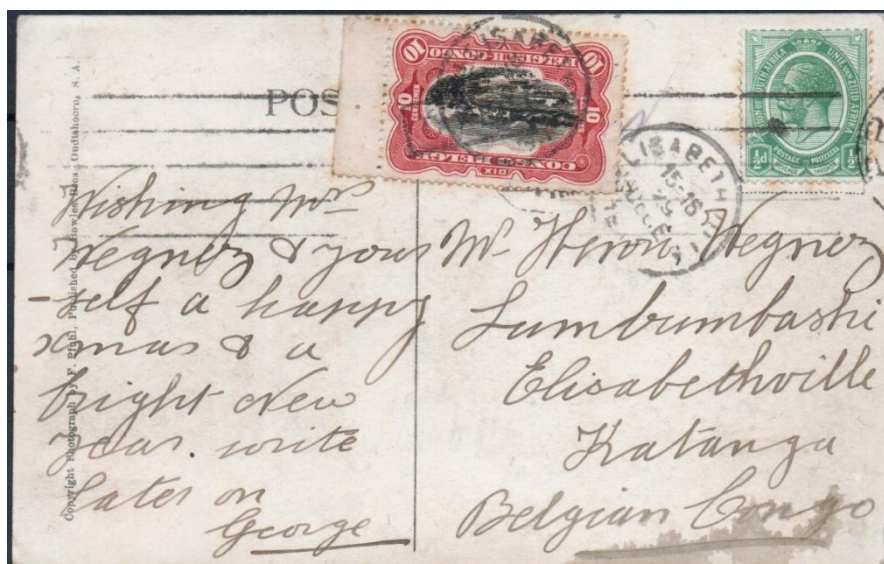 POS
Copyright Photograph by F. Pfuhl, Published By Bowles Bros. Oudtshoorn, S. A.
10 BELGIAN-CONGO 10
10 CENTIMES
CONGO BELGE
DIX
UNION OF SOUTH AFRICA
UNIE VAN ZUID AFRIKA
POSTAGE
½d ½d
ELISABETHV
15-16
Wishing Mrs
Wegnez & your
-self a happy
xmas & a
bright New
Year. write
later on
George
Mr Henri Wegnez
Lumbumbashi
Elisabethville
Katanga
Belgian Congo